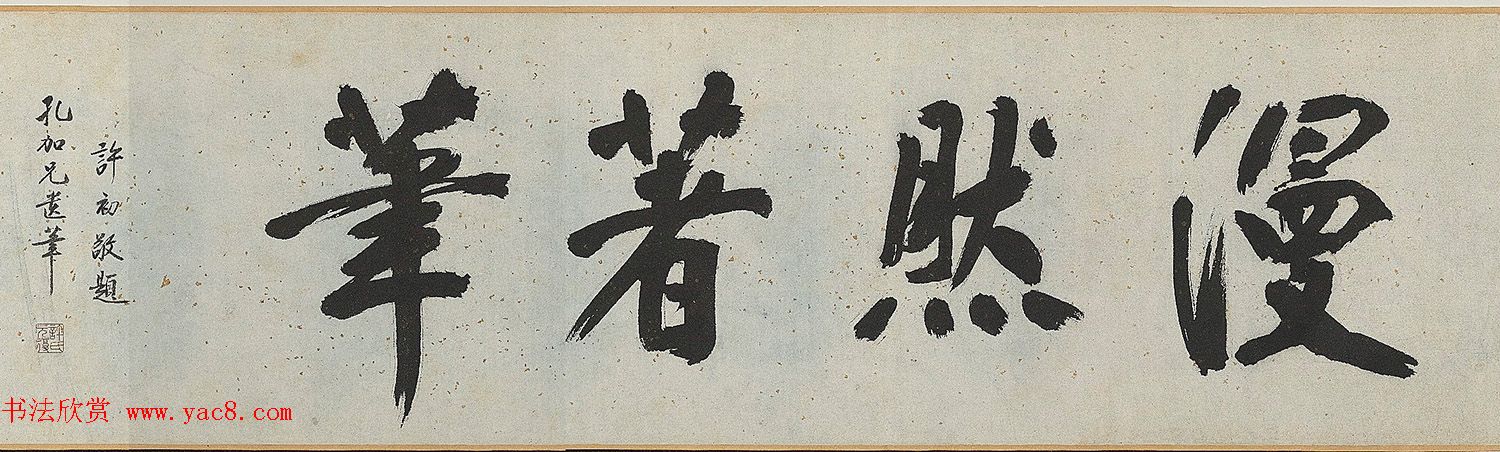 漫然著筆
許初敬題
孔加兄遺筆
許氏元復
书法欣赏 www.yac8.com